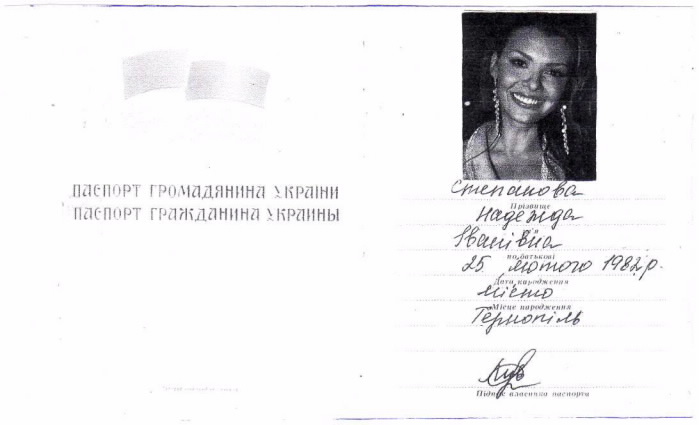 ПАСПОРТ ГРОМАДЯНИНА УКРАЇНИ
ПАСПОРТ ГРАЖДАНИНА УКРАИНЫ
Степанова
Прізвище
Надежда
Іванівна
по батькові
25 лютого 1982 р.
Дата народження
місто
Місце народження
Тернопіль
Підпис власника паспорта